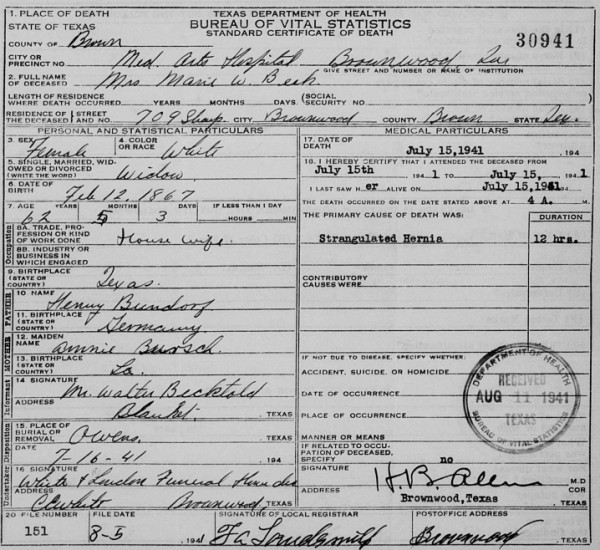 1. PLACE OF DEATH
STATE OF TEXAS
TEXAS DEPARTMENT OF HEALTH
BUREAU OF VITAL STATISTICS
STANDARD CERTIFICATE OF DEATH
30941
COUNTY OF Brown
CITY OR PRECINCT NO. Med. Arts Hospital Brownwood Tex
GIVE STREET AND NUMBER OR NAME OF INSTITUTION
2. FULL NAME OF DECEASED Mrs Marie W. Beck
LENGTH OF RESIDENCE WHERE DEATH OCCURRED YEARS MONTHS DAYS (SOCIAL SECURITY NO.
RESIDENCE OF THE DECEASED STREET AND NO. 709 Sharp CITY Brownwood COUNTY Brown STATE Tex.
PERSONAL AND STATISTICAL PARTICULARS
3. SEX Female 4. COLOR OR RACE White
5. SINGLE, MARRIED, WIDOWED OR DIVORCED (WRITE THE WORD) Widow
6. DATE OF BIRTH Feb 12, 1867
7. AGE 62 YEARS 5 MONTHS 3 DAYS IF LESS THAN 1 DAY HOURS MIN
Occupation
8A. TRADE, PROFESSION OR KIND OF WORK DONE House wife.
8B. INDUSTRY OR BUSINESS IN WHICH ENGAGED
9. BIRTHPLACE (STATE OR COUNTRY) Texas.
FATHER
10 NAME Henry Bundorf
11. BIRTHPLACE (STATE OR COUNTRY) Germany
MOTHER
12. MAIDEN NAME Annie Bursch.
13. BIRTHPLACE (STATE OR COUNTRY) La.
Informant
14 SIGNATURE Mr. Walter Becktold
ADDRESS Blanket. TEXAS
Undertaker Disposition
15. PLACE OF BURIAL OR REMOVAL Owens, TEXAS
DATE 7-16-41 194
16 SIGNATURE White & London Funeral
ADDRESS Brownwood, TEXAS
MEDICAL PARTICULARS
17. DATE OF DEATH July 15,1941 194
18. I HEREBY CERTIFY THAT I ATTENDED THE DECEASED FROM
July 15th 194 1 TO July 15, 194 1
I LAST SAW H er ALIVE ON July 15,1941 194
THE DEATH OCCURRED ON THE DATE STATED ABOVE AT 4 A. M.
THE PRIMARY CAUSE OF DEATH WAS: DURATION
Strangulated Hernia 12 hrs.
CONTRIBUTORY CAUSES WERE:
IF NOT DUE TO DISEASE, SPECIFY WHETHER:
ACCIDENT, SUICIDE, OR HOMICIDE
DATE OF OCCURRENCE
PLACE OF OCCURRENCE
MANNER OR MEANS
IF RELATED TO OCCUPATION OF DECEASED, SPECIFY no
SIGNATURE H.B. Allen M.D
ADDRESS Brownwood,Texas COR TEXAS
DEPARTMENT OF HEALTH
RECEIVED
AUG 11 1941
TEXAS
BUREAU OF VITAL STATISTICS
20 FILE NUMBER FILE DATE SIGNATURE OF LOCAL REGISTRAR POSTOFFICE ADDRESS
151 8-5 194 Brownwood TEXAS